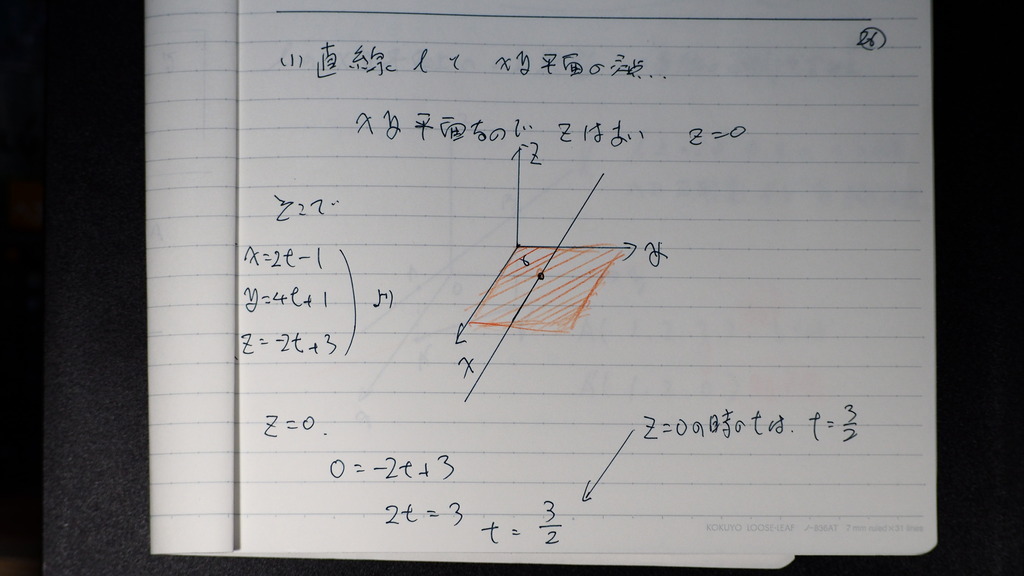 26
(1) 直線 l と xy平面の交点..
xy平面なので zはない z=0
そこで
x=2t-1
y=4t+1
z=-2t+3
より
z
y
x
z=0.
z=0の時のtは. t=3/2
0=-2t+3
2t=3 t=3/2
KOKUYO LOOSE-LEAF ノ-836AT 7 mm ruled×31 lines